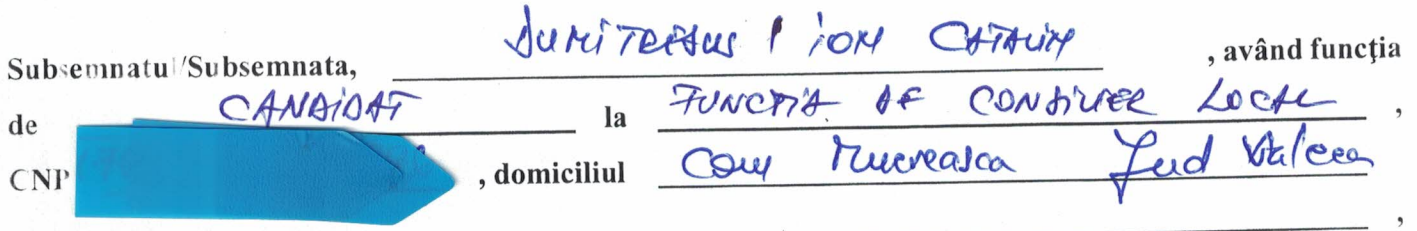 Subsemnatul/Subsemnata, DUMITRESCU I ION CATALIN, având funcția
de CANDIDAT la FUNCTIA DE CONSILIER LOCAL,
CNP, domiciliul Com Mucreasca Jud Valcea
,